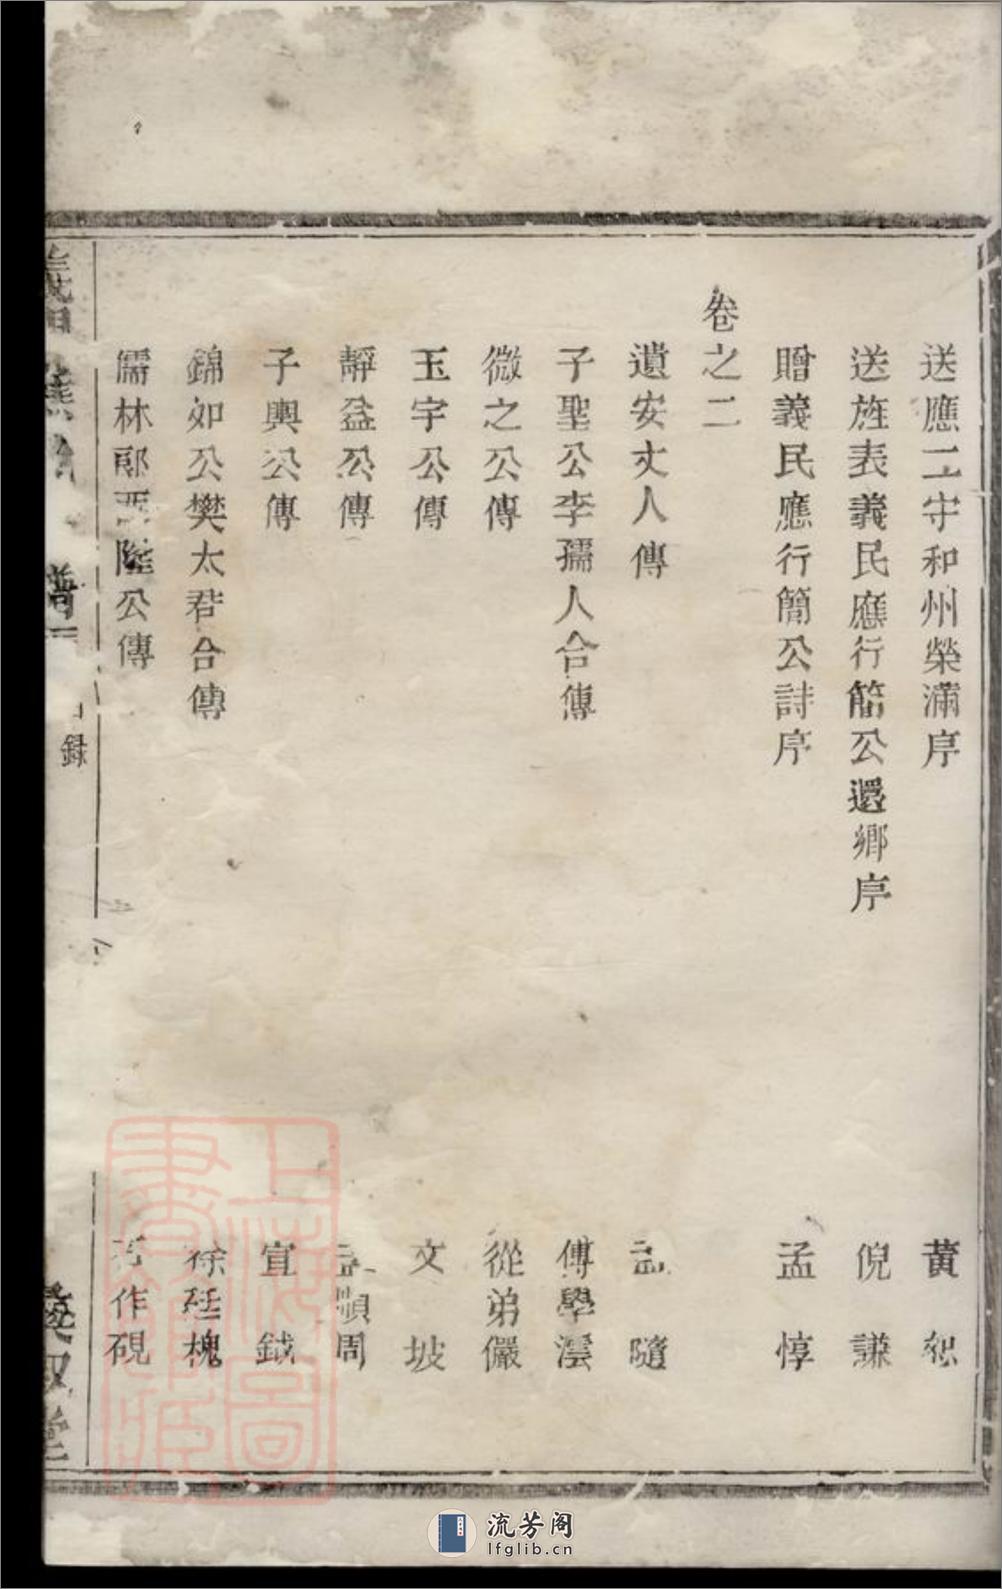 送應二守和州榮滿序 黃恕
送旌表義民應行簡公還鄉序 倪謙
贈義民應行簡公詩序 孟惇
卷之二
遺安丈人傳 孟隨
子聖公李孺人合傳 傅學澐
微之公傳 從弟儼
玉宇公傳 文坡
靜益公傳 周
子輿公傳 宣鉞
錦如公樊太君合傳 徐廷槐
儒林郎西陸公傳 作硯
譜
錄
上海圖書館藏
流芳阁
lfglib.cn